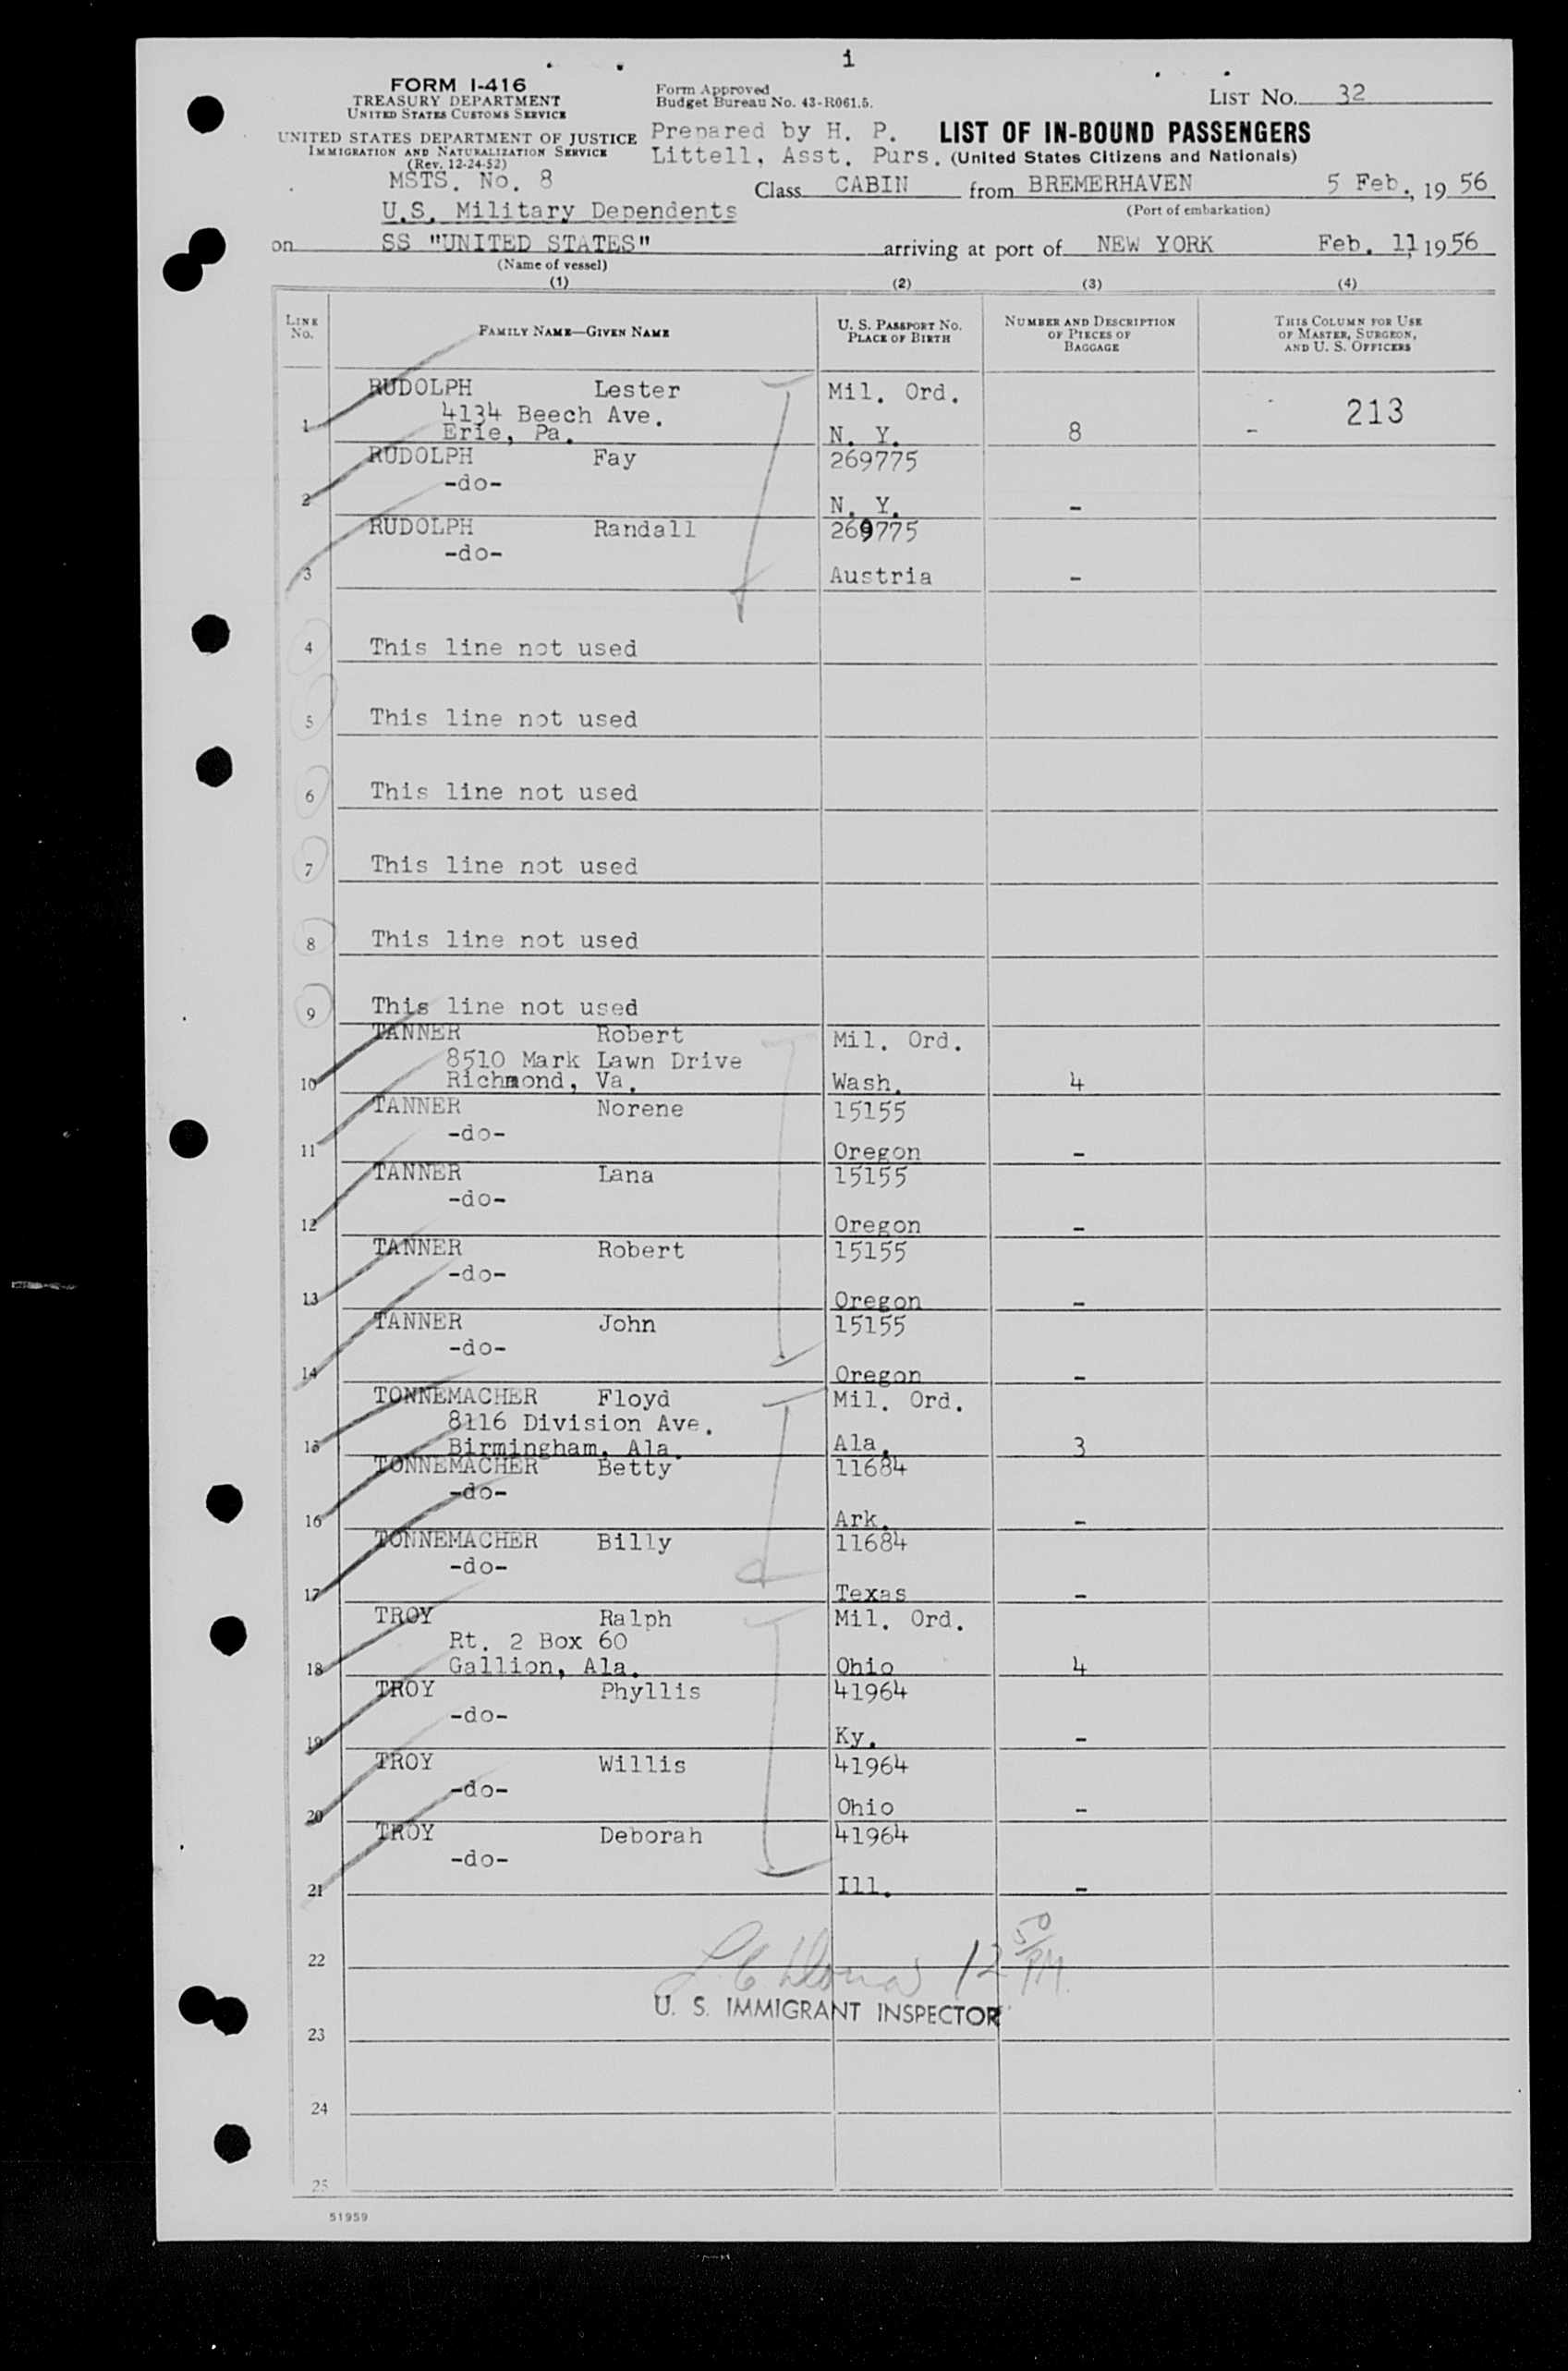 i
FORM I-416
TREASURY DEPARTMENT
UNITED STATES CUSTOMS SERVICE
UNITED STATES DEPARTMENT OF JUSTICE
IMMIGRATION AND NATURALIZATION SERVICE
(Rev. 12-24-52)
Form Approved
Budget Bureau No. 43-R061.5.
LIST NO. 32
Prepared by H. P.
Littell, Asst. Purs.
LIST OF IN-BOUND PASSENGERS
(United States Citizens and Nationals)
MSTS. No. 8
U.S. Military Dependents
Class CABIN from BREMERHAVEN 5 Feb., 19 56
(Port of embarkation)
on SS "UNITED STATES" arriving at port of NEW YORK Feb. 11, 1956
(Name of vessel)
(1) (2) (3) (4)
LINE NO. FAMILY NAME—GIVEN NAME U. S. PASSPORT NO. PLACE OF BIRTH NUMBER AND DESCRIPTION OF PIECES OF BAGGAGE THIS COLUMN FOR USE OF MASTER, SURGEON, AND U. S. OFFICERS
RUDOLPH Lester Mil. Ord.
4134 Beech Ave. 213
1 Erie, Pa. N. Y. 8 -
RUDOLPH Fay 269775
-do-
2 N. Y. -
RUDOLPH Randall 269775
-do-
3 Austria -
4 This line not used
5 This line not used
6 This line not used
7 This line not used
8 This line not used
9 This line not used
TANNER Robert Mil. Ord.
8510 Mark Lawn Drive
10 Richmond, Va. Wash. 4
TANNER Norene 15155
-do-
11 Oregon -
TANNER Lana 15155
-do-
12 Oregon -
TANNER Robert 15155
-do-
13 Oregon -
TANNER John 15155
-do-
14 Oregon -
TONNEMACHER Floyd Mil. Ord.
8116 Division Ave.
15 Birmingham, Ala. Ala. 3
TONNEMACHER Betty 11684
-do-
16 Ark. -
TONNEMACHER Billy 11684
-do-
17 Texas -
TROY Ralph Mil. Ord.
Rt. 2 Box 60
18 Gallion, Ala. Ohio 4
TROY Phyllis 41964
-do-
19 Ky. -
TROY Willis 41964
-do-
20 Ohio -
TROY Deborah 41964
-do-
21 Ill. -
22 12 50 PM.
U. S. IMMIGRANT INSPECTOR
23
24
25
51959